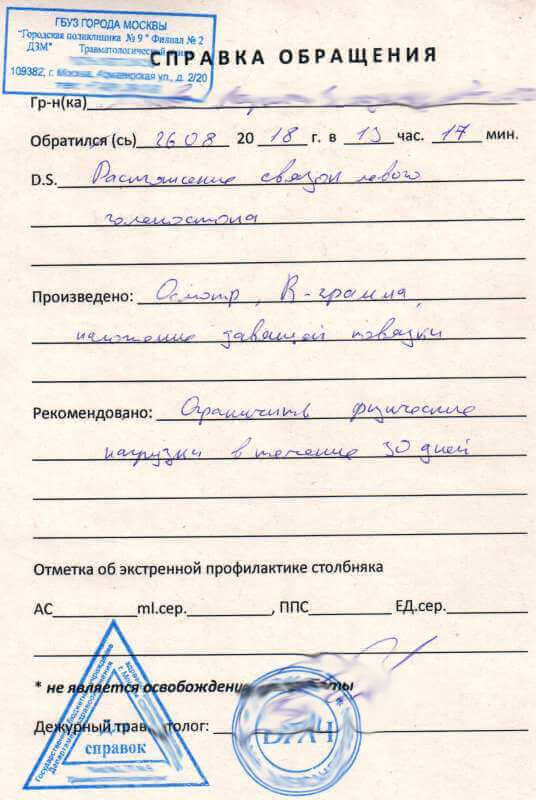 ГБУЗ ГОРОДА МОСКВЫ
"Городская поликлиника № 9" Филиал № 2
ДЗМ" Травматологический
109382, г. Москва, ул., д. 2/20
СПРАВКА ОБРАЩЕНИЯ
Гр-н(ка)
Обратился (сь) 26 08 20 18 г. в 13 час. 17 мин.
D.S. Растяжение связок левого
голеностопа
Произведено: Осмотр, R-грамма,
наложение давящей повязки
Рекомендовано: Ограничить физические
нагрузки в течение 30 дней
Отметка об экстренной профилактике столбняка
АС ml.сер. , ППС ЕД.сер.
* не является
Дежурный
Государственное бюджетное учреждение
Департамента здравоохранения
г. Москвы
Для
справок
ВРАЧ